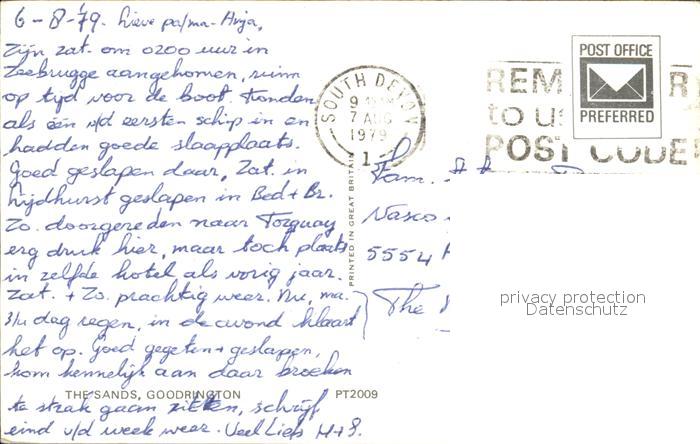 6-8-'79. Lieve pa/ma-Anja,
Zijn zat. om 0200 uur in
Zeebrugge aangekomen, ruim
op tijd voor de boot. Konden
als één v/d eersten schip in en
hadden goede slaapplaats.
Goed geslapen daar, Zat. in
Lijdhurst geslapen in Bed + Br.
Zo. doorgereden naar Torquay
erg druk hier, maar toch plaats
in zelfde hotel als vorig jaar.
Zat. + Zo. prachtig weer. Nu, ma.
3/4 dag regen, in de avond klaart
het op. Goed gegeten + geslapen,
kom kennelijk aan daar broeken
te strak gaan zitten, schrijf
eind v/d week weer. Veel Liefs H+S.
THE SANDS, GOODRINGTON
PT2009
PRINTED IN GREAT BRITAIN
SOUTH DEVON
9
7 AUG
1979
1
REM
to u
POST CODE
POST OFFICE
PREFERRED
Fam.
Vasco
5554
The
privacy protection
Datenschutz